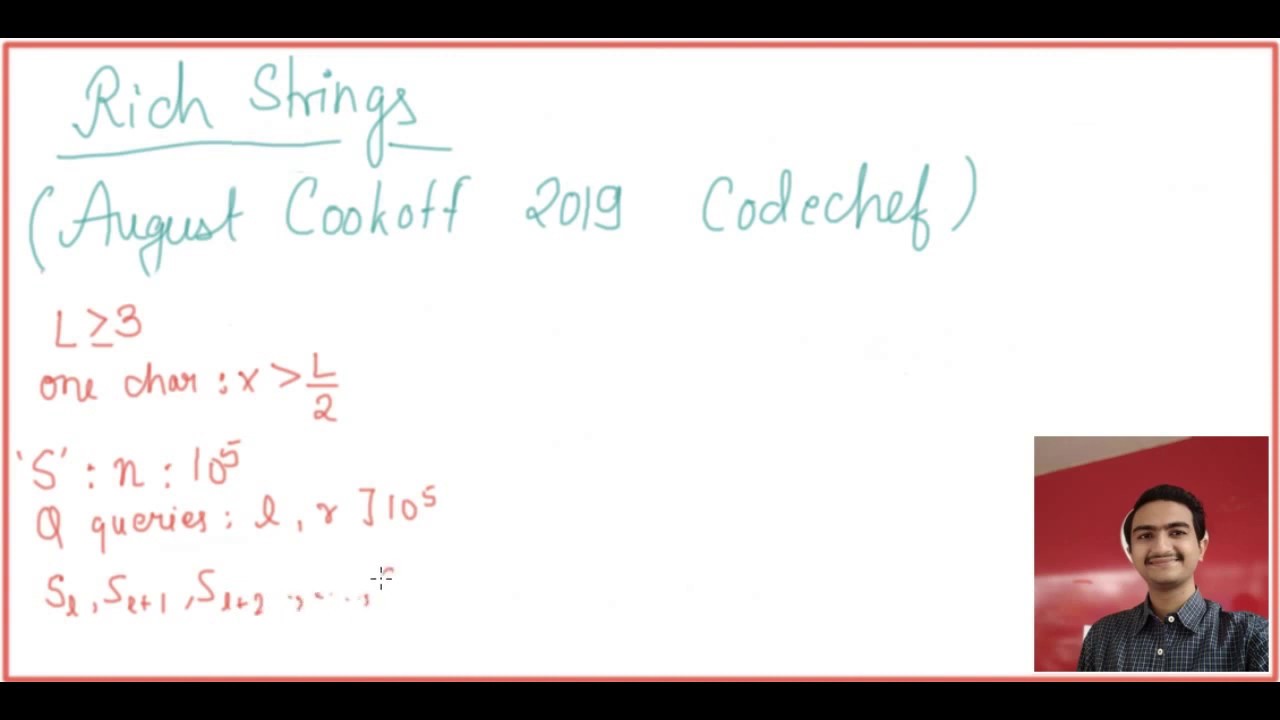 Rich Strings
(August Cookoff 2019 Codechef)
L ≥ 3
one char : x > L/2
'S' : n : 10^5
Q queries : l, r ] 10^5
S_l, S_{l+1}, S_{l+2} ., ....,